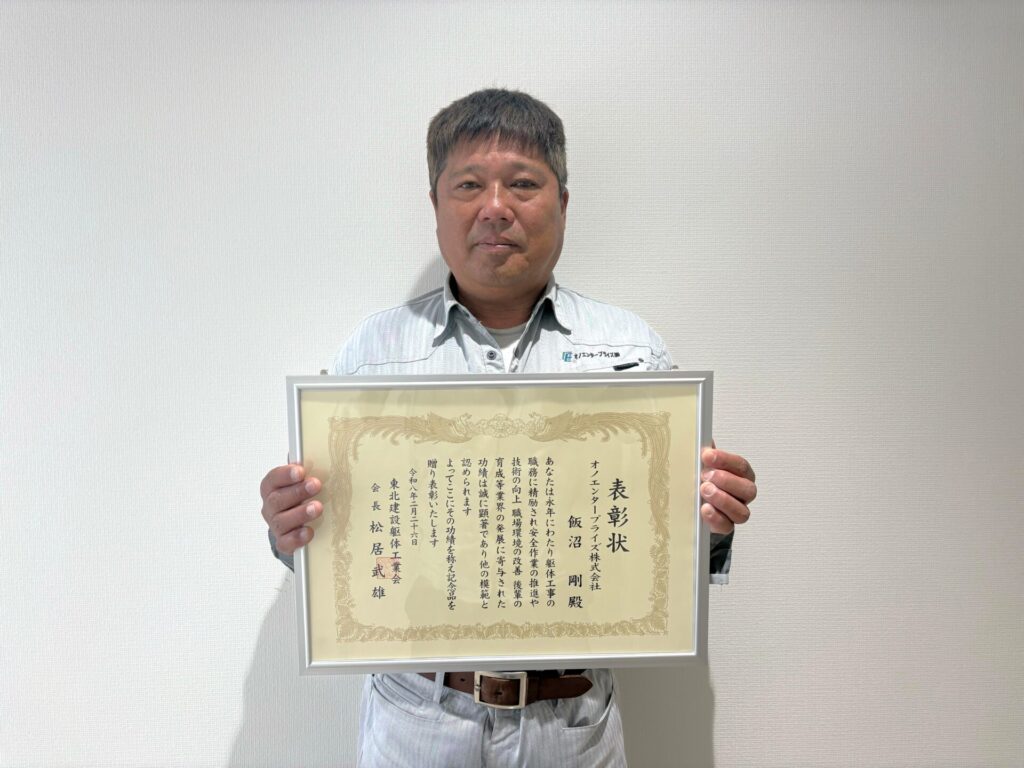 オノエンタープライズ㈱
表彰状
オノエンタープライズ株式会社
飯沼 剛 殿
あなたは永年にわたり躯体工事の
職務に精励され安全作業の推進や
技術の向上 職場環境の改善 後輩の
育成等業界の発展に寄与された
功績は誠に顕著であり他の模範と
認められます
よってここにその功績を称え記念品を
贈り表彰いたします
令和八年二月二十六日
東北建設躯体工業会
会長 松居武雄